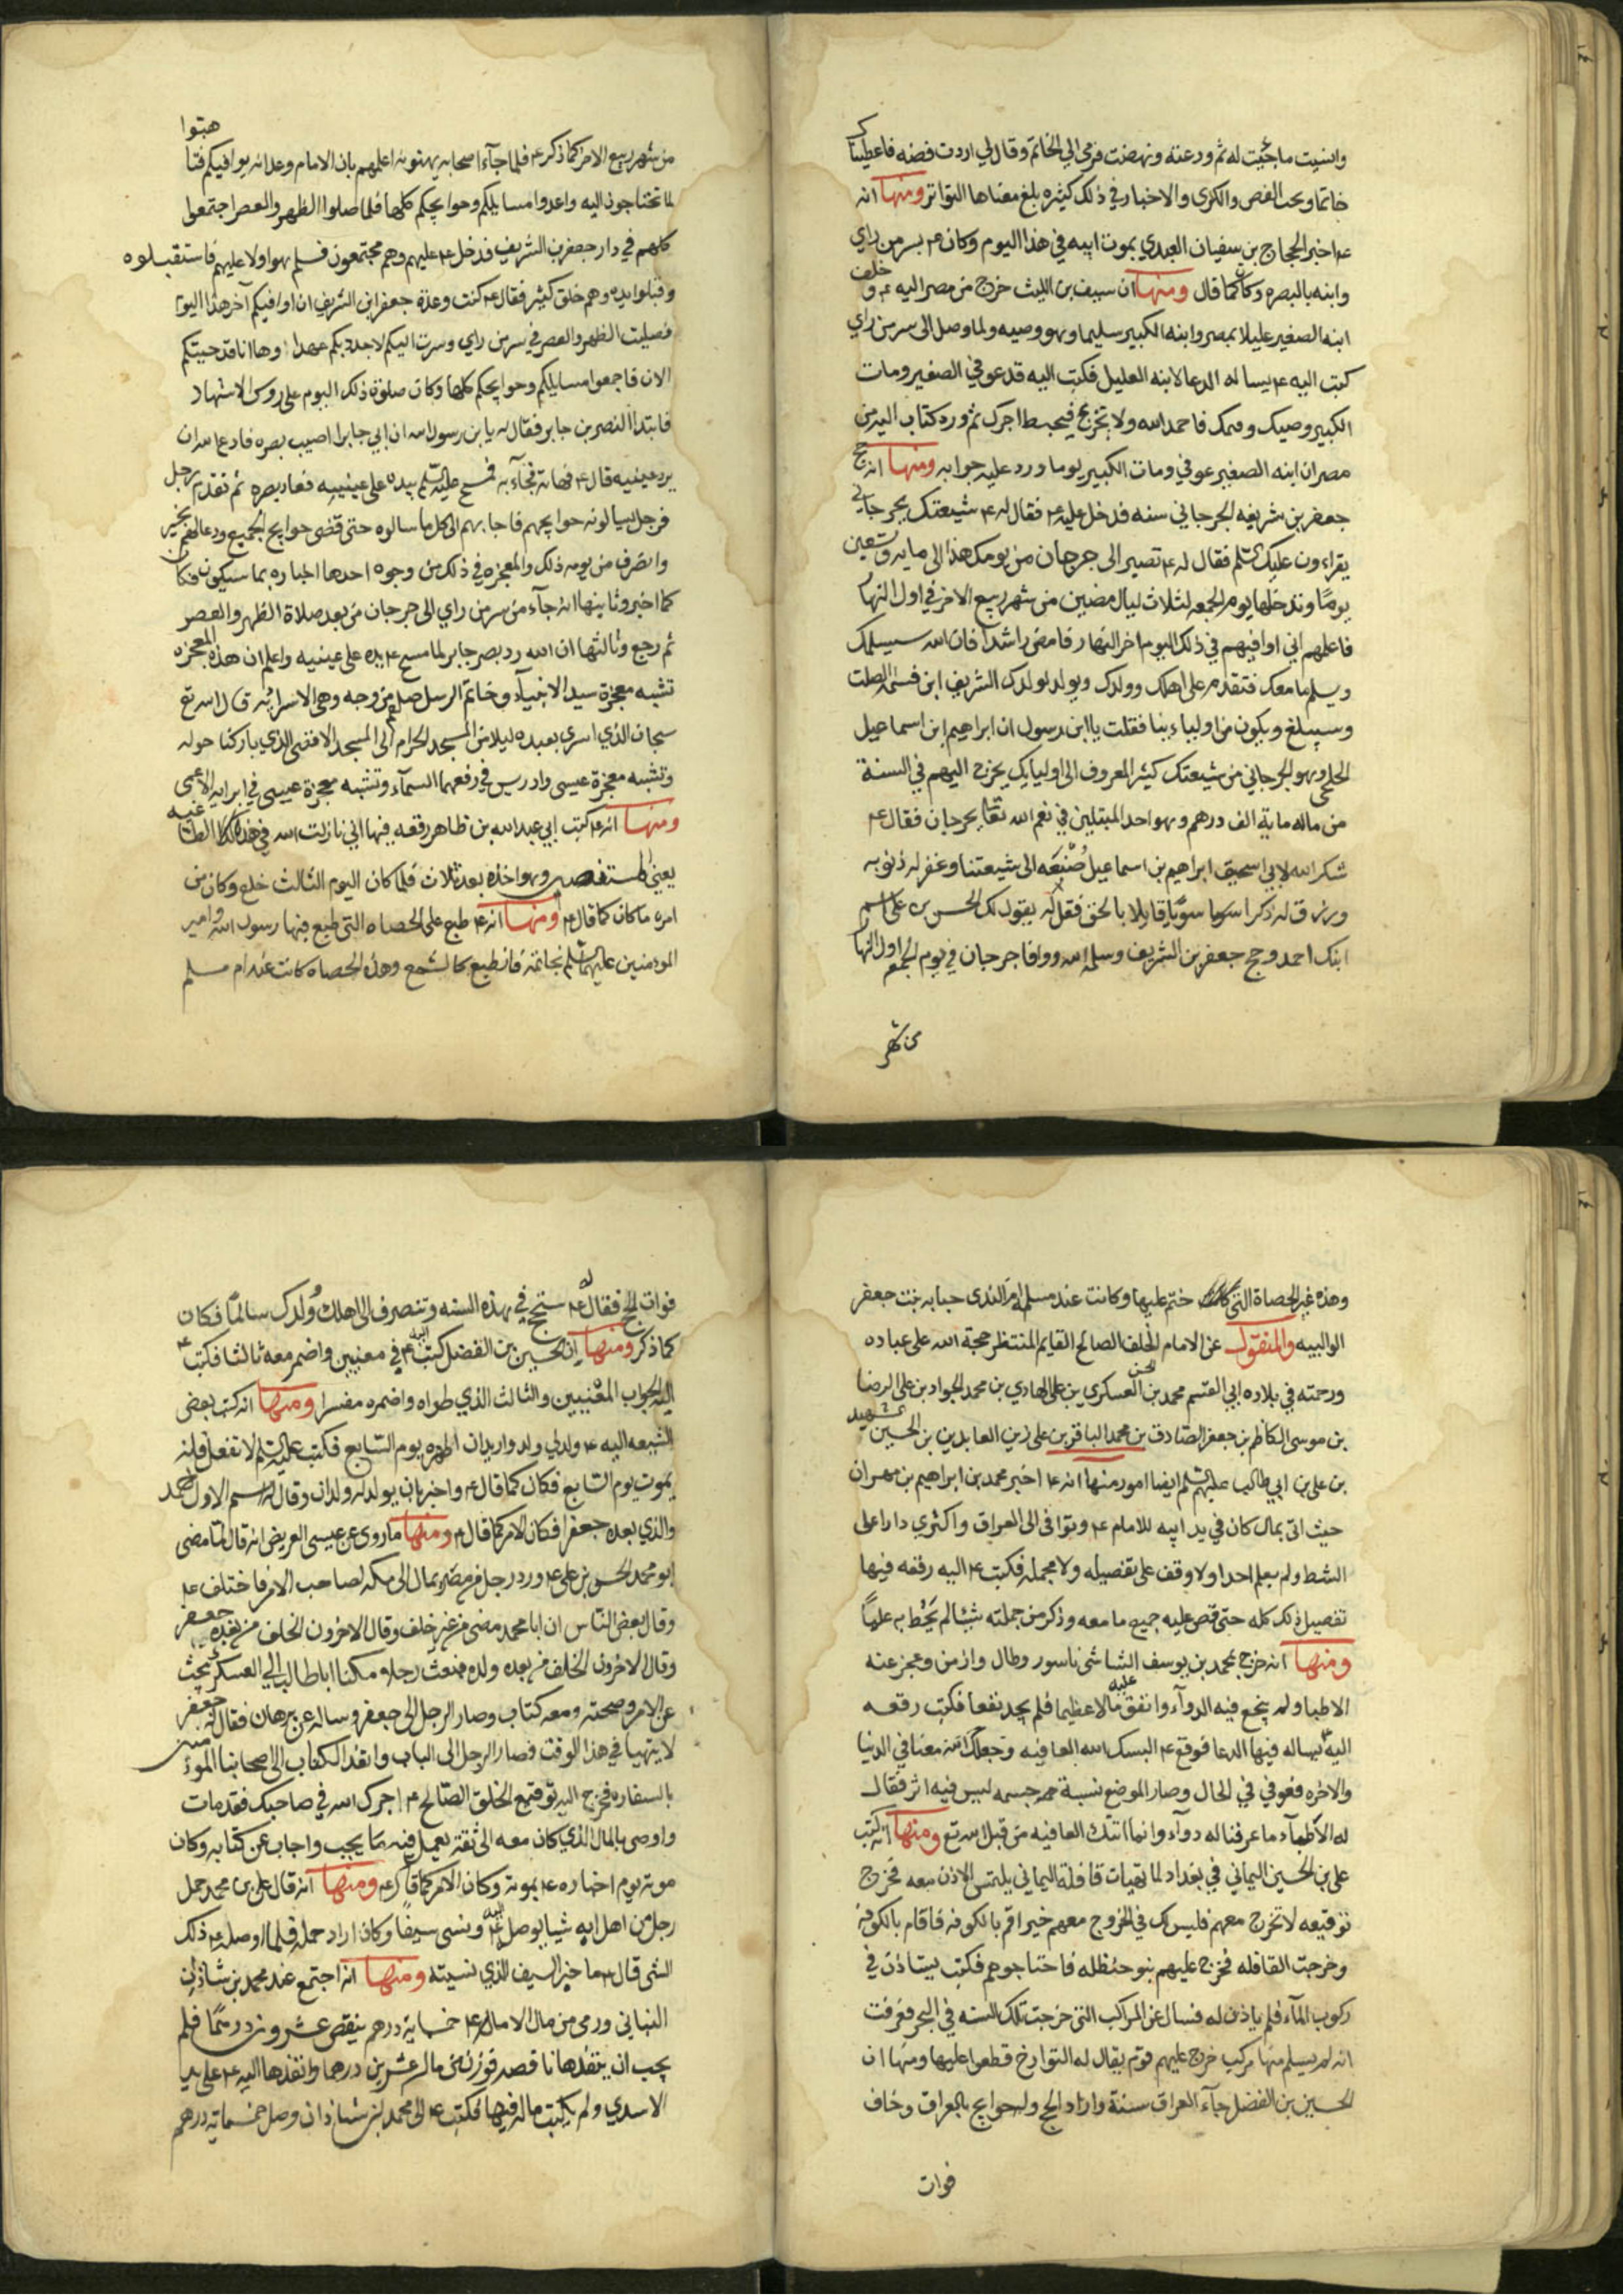 وانسيت ما جئت له ثم ودعته ونهضت فرمى الي الخاتم وقال لي اردت فضه فاعطيناك
خاتما وبحت الفص والكرى والاخبار في ذلك كثيره بلغ معناها التواتر ومنها انه
ع۴ اخبر الحجاج بن سفيان العبدي بموت ابيه في هذا اليوم وكان ع۴ بسر من راي
وابنه بالبصره وكان كما قال ومنها ان سيف بن الليث خرج من مصر اليه ع۴ وخلف
ابنه الصغير عليلا بمصر وابنه الكبير سليما وهو وصيه ولما وصل الى سر من راي
كتب اليه ع۴ يساله الدعا لابنه العليل فكتب اليه قد عوفي الصغير ومات
الكبير وصيك وقيمك فاحمد الله ولا تجزع فيحبط اجرك ثم ورد كتاب اليه من
مصر ان ابنه الصغير عوفي ومات الكبير يوما ورد عليه جوابه ومنها انه حج
جعفر بن شريفه الجرجاني سنه فدخل عليه ع۴ فقال له ع۴ شيعتك بجرجان
يقراون عليك السلم فقال له ع۴ تصير الى جرجان من يومك هذا الى مايه وتسعين
يوما وتدخلها يوم الجمعه لثلاث ليال مضين من شهر ربيع الاخر في اول النهار
فاعلمهم اني اوافيهم في ذلك اليوم اخر النهار فامض راشدا فان الله سيسلمك
ويسلم ما معك فتقدم على اهلك وولدك ويولد لولدك الشريف ابن فسمه الصلت
وسيبلغ ويكون من اولياءنا فقلت يا ابن رسول ان ابراهيم ابن اسماعيل
الخلجي وهو الجرجاني من شيعتك كثير المعروف الى اولياءك يخرج اليهم في السنة
من ماله ماية الف درهم وهو احد المبتلين في نعم الله تعا بجرجان فقال ع۴
شكر الله لابي اسحق ابراهيم بن اسماعيل صنيعه الى شيعتنا وغفر له ذنوبه
ورزقه ذكرا سويا قايلا بالحق فقل له يقول لك الحسن بن علي سم
ابنك احمد وحج جعفر بن الشريف وسلمه الله ووافا جرجان في يوم الجمعه اول النهار
من شهر
هيتوا
من شهر ربيع الاخر كما ذكر ع۴ فلما جآء اصحابه يهنونه اعلمهم بان الامام وعدانه يوافيكم فتا
لما تحتاجون اليه واعدوا مسايلكم وحوايجكم كلها فلما صلوا الظهر والعصر اجتمعوا
كلهم في دار جعفر بن الشريف فدخل ع۴ عليهم وهم مجتمعون فسلم هو اولا عليهم فاستقبلوه
وقبلوا يده وهم خلق كثير فقال ع۴ كنت وعدة جعفر ابن الشريف ان اوافيكم آخر هذا اليوم
فصليت الظهر والعصر في سر من راي وسرت اليكم لاجدد بكم عهدا وها انا قد جيتكم
الان فاجمعوا مسايلكم وحوايجكم كلها وكان صلوة ذلك اليوم على روس الاشهاد
فابتدا النصر بن جابر فقال له يا بن رسول الله ان ابي جابرا اصيب بصره فادع الله ان
يرد عينيه قال ع۴ فهاته فجآء به فمسح عليه السلم بيده على عينيه فعاد بصره ثم تقدم رجل
فرجل يسالونه حوايجهم فاجابهم الى كل ما سالوه حتى قضى حوايج الجميع ودعا لهم بخير
وانصرف من يومه ذلك والمعجزه في ذلك من وجوه احدها اخباره بما سيكون فكان
كما اخبر وثانيها انه جآء من سر من راي الى جرجان من بعد صلاة الظهر والعصر
ثم رجع وثالثها ان الله رد بصر جابر لما مسح ع۴ يده على عينيه واعلم ان هذه المعجزه
تشبه معجزة سيد الانبياء وخاتم الرسل صلعم من وجه وهي الاسرا به قال الله تع
سبحان الذي اسرى بعبده ليلا من المسجد الحرام الى المسجد الاقصى الذي باركنا حوله
وتشبه معجزة عيسى وادريس في رفعهما السماء وتشبه معجزة عيسى في ابرايه الاعمى
ومنها انه ع۴ كتب ابي عبد الله بن طاهر رقعه فيها اني نازلت الله في هذا الطاغيه
يعني المستعين وهو اخذه بعد ثلاث فلما كان اليوم الثالث خلع وكان من
امره ما كان كما قال ع۴ ومنها انه ع۴ طبع على الحصاه التي طبع فيها رسول الله وامير
المومنين عليهما السلم بخاتمه فانطبع كالشمع وهذه الحصاه كانت عند ام سلم
وهذه غير الحصاة التي ختم عليها وكانت عند مسلم ام الندى حبابه بنت جعفر
الوالبيه والمنقول عن الامام الخلف الصالح القايم المنتظر حجة الله على عباده
ورحمته في بلاده ابي القسم محمد بن الحسن العسكري بن علي الهادي بن محمد الجواد بن علي الرضا
بن موسى الكاظم بن جعفر الصادق بن محمد الباقر بن علي زين العابدين بن الحسين الشهيد
بن علي بن ابي طالب عليهم السلم ايضا امور منها انه ع۴ اخبر محمد بن ابراهيم بن مهران
حيث اتى بمال كان في يد ابيه للامام ع۴ وتوافى الى العراق واكترى دارا على
الشط ولم يعلم احدا ولا وقف على تفصيله ولا مجمله فكتب ع۴ اليه رقعه فيها
تفصيل ذلك كله حتى قص عليه جميع ما معه وذكر من جملته شيئا لم يحط به علما
ومنها انه خرج بمحمد بن يوسف الشاشي ناسور وطال وازمن وعجز عنه
الاطبا ولم ينجع فيه الدوآء وانفق عليه مالا عظيما فلم يجد نفعا فكتب رقعه
اليه ع۴ يساله فيها الدعا فوقع ع۴ البسك الله العافيه وجعلك الله معنا في الدنيا
والاخره فعوفي في الحال وصار الموضع نسبة جسمه ليس فيه اثر فقال
له الاطبآء ما عرفنا له دوآء وانما اتتك العافيه من قبل الله تع ومنها انه كتب
علي بن الحسين اليماني في بغداد لما تهيات قافلة اليماني يلتمس الاذن معه فخرج
توقيعه لا تخرج معهم فليس لك في الخروج معهم خير اقم بالكوفه فاقام بالكوفه
وخرجت القافله فخرج عليهم بنو حنظله فاجتاحوهم فكتب يستاذن في
ركوب المآء فلم ياذن له فسال عن المراكب التي خرجت تلك السنه في البحر فعرفت
انه لم يسلم منها مركب خرج عليهم قوم يقال له التوارخ قطعوا عليها ومنها ان
الحسين بن الفضل جآء العراق سنة واراد الحج وله حوايج بالعراق وخاف
فوات
فوات الحج فقال له ع۴ ستحج في هذه السنه وتنصرف الى اهلك وولدك سالما فكان
كما ذكر ومنها ان الحسين بن الفضل كتب اليه ع۴ في معنيين واضمر معه ثالثا فكتب ع۴
اليه الجواب المعنيين والثالث الذي طواه واضمره مفسرا ومنها انه كتب بعض
الشيعه اليه ع۴ ولد لي ولد واريد ان اطهره يوم السابع فكتب عليه السلم لا تفعل فانه
يموت يوم السابع فكان كما قال ع۴ واخبر بان يولد له ولدان وقال له سم الاول احمد
والذي بعده جعفرا فكان الامر كما قال ع۴ ومنها ما روى عن عيسى العريض انه قال لما مضى
ابو محمد الحسن بن علي ع۴ ورد رجل من مصر بمال الى مكه لصاحب الامر فاختلف ع۴
وقال بعض الناس ان ابا محمد مضى من غير خلف وقال الاخرون الخلف من بعده جعفر
وقال الاخرون الخلف من بعده ولده فبعث رجلا مكنا اباطالب الى العسكر يبحث
عن الامر وصحته ومعه كتاب وصار الرجل الى جعفر وساله عن برهان فقال له جعفر
لا يتهيا في هذا الوقت فصار الرجل الى الباب وانفذ الكتاب الى اصحابنا الموسمين
بالسفاره فخرج اليه توقيع الخلق الصالح ع۴ اجرك الله في صاحبك فقد مات
واوصى بالمال الذي كان معه الى ثقة يعمل فيه بما يجب واجاب عن كتابه وكان
موته يوم اخباره ع۴ بموته وكان الامر كما قال ع۴ ومنها انه قال علي بن محمد حمل
رجل من اهل ابه شيا يوصل اليه ع۴ ونسى سيفا وكان اراد حمله فلما اوصله ع۴ ذلك
الشى قال ع۴ ما خبر السيف الذي نسيته ومنها انه اجتمع عند محمد بن شاذان
النباني ورمى من مال الامام ع۴ خمسمايه درهم ينقص عشرون درهما فلم
يحب ان ينفذها ناقصه فوزن من ماله عشرين درهما وانفذها اليه ع۴ على يد
الاسدي ولم يكتب ماله فيها فكتب ع۴ الى محمد بن شاذان وصل خمسمايه درهم